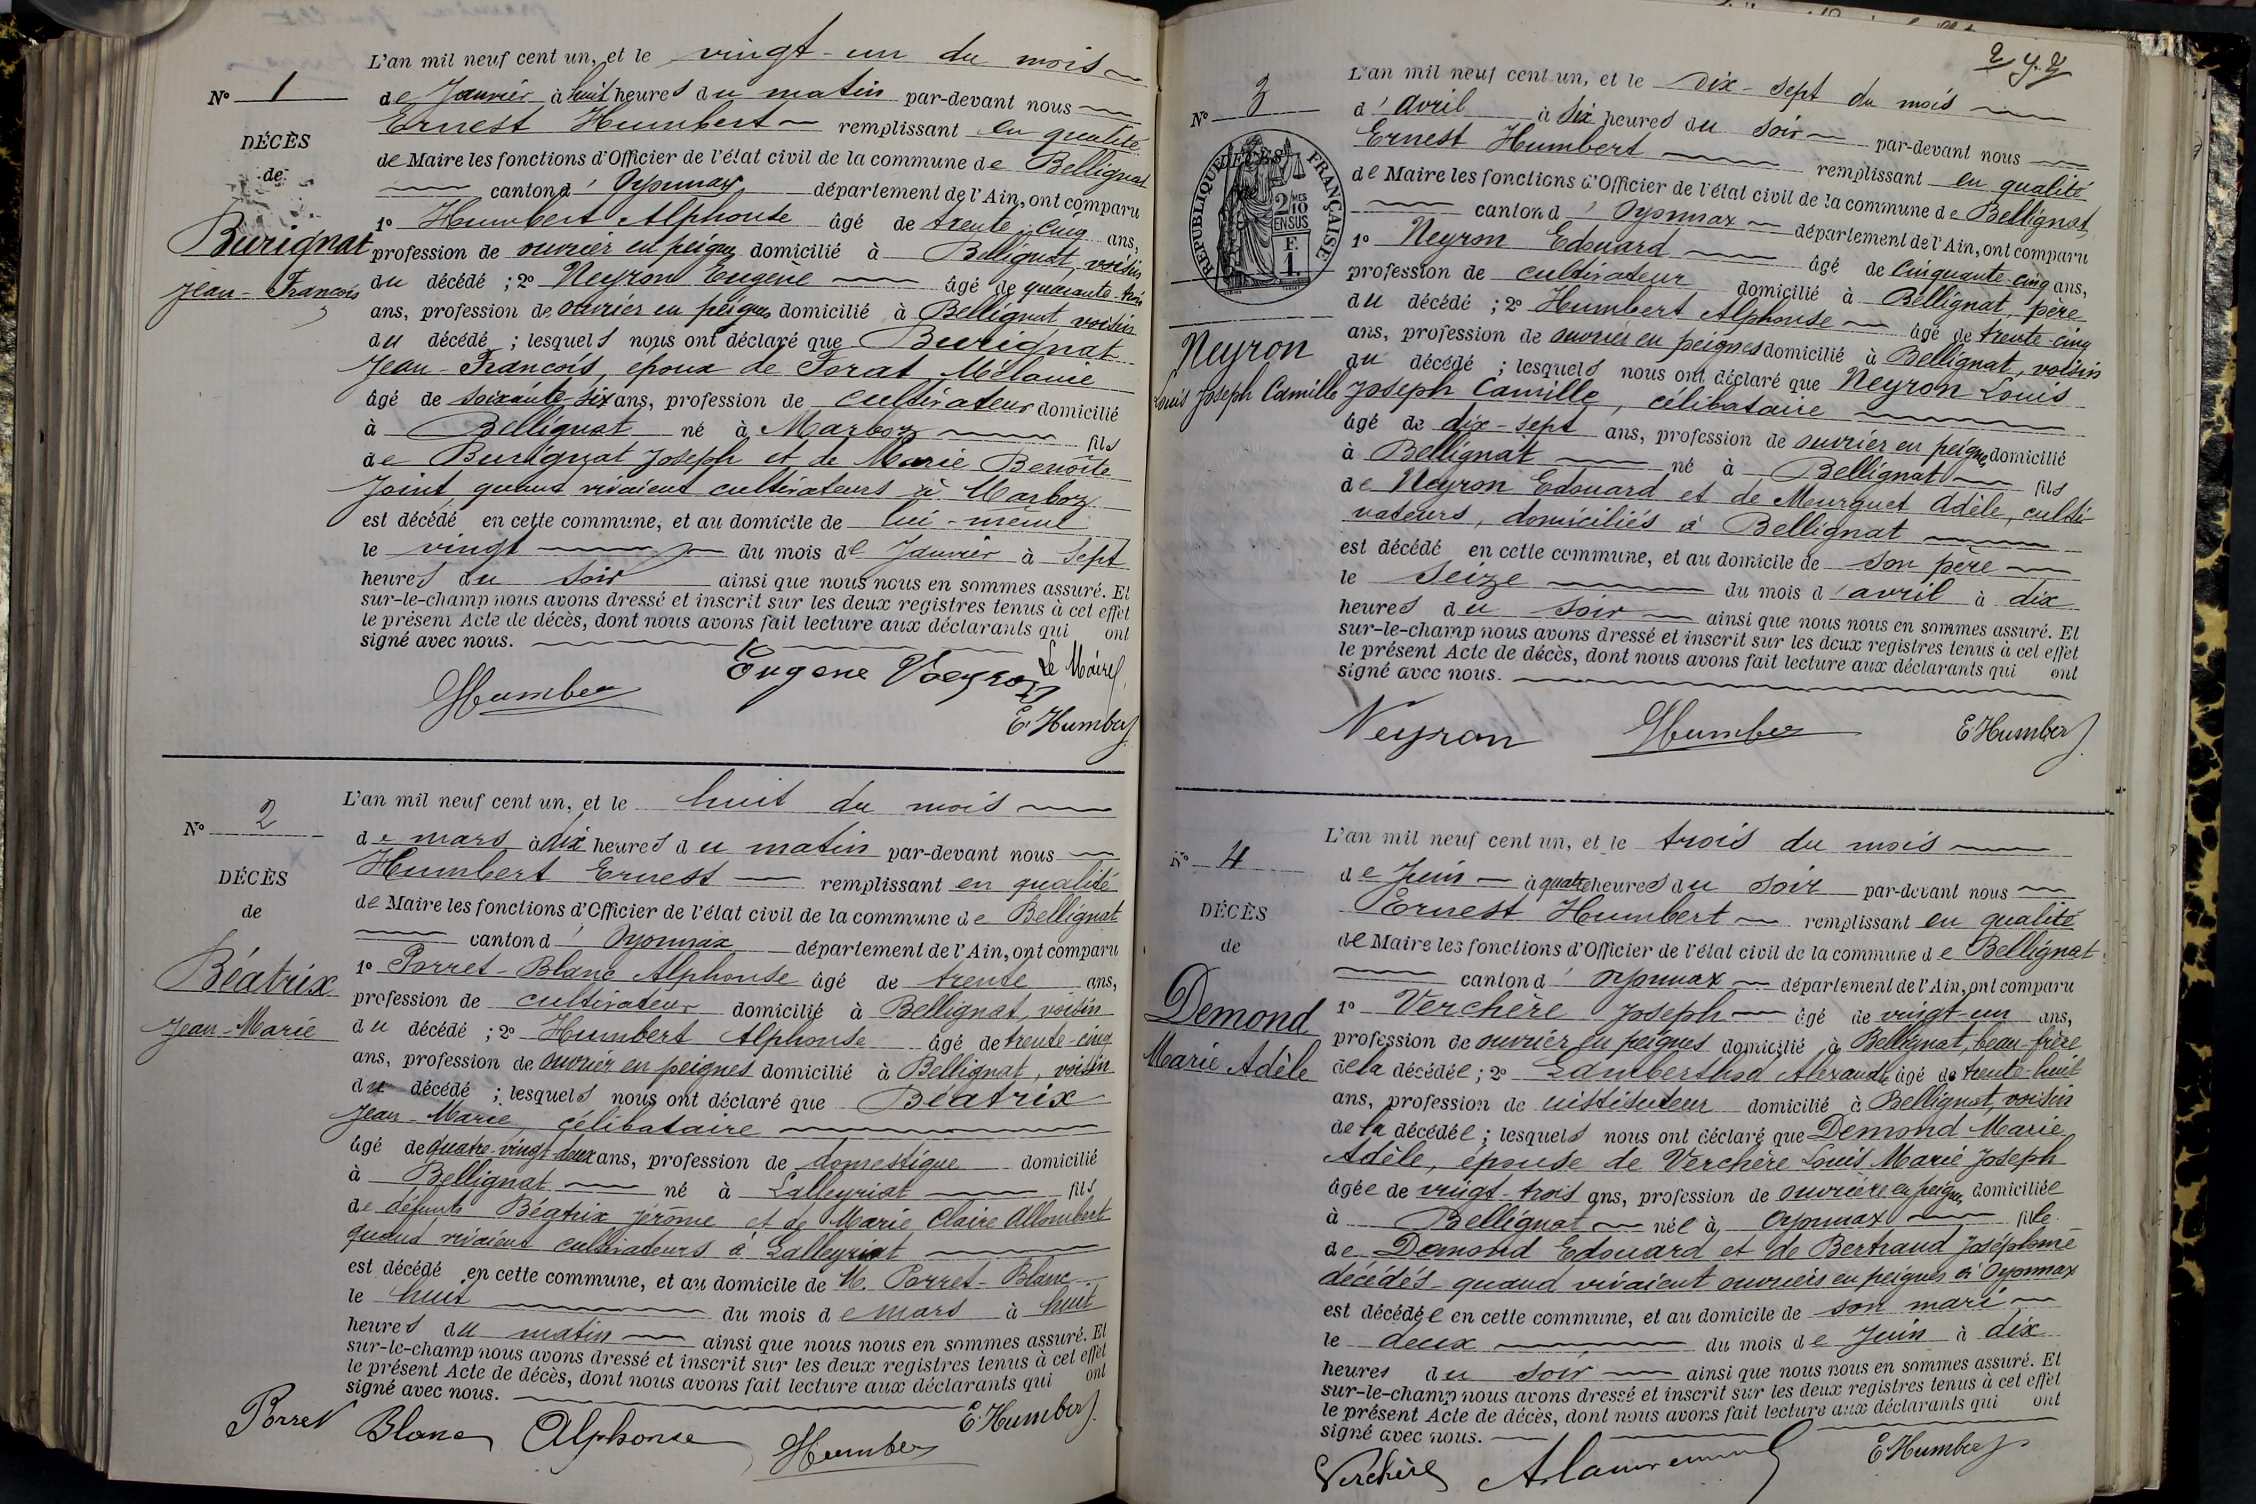 L'an mil neuf cent un, et le vingt-un du mois
N° 1
de Janvier à huit heures du matin par-devant nous
Ernest Humbert remplissant en qualité
DÉCÈS
de Maire les fonctions d'Officier de l'état civil de la commune de Bellignat
de
canton d'Oyonnax département de l'Ain, ont comparu
1° Humbert Alphonse âgé de trente-cinq ans,
Burignat
profession de ouvrier en peignes domicilié à Bellignat, voisin
Jean-François
du décédé ; 2° Neyron Eugène âgé de quarante-trois
ans, profession de ouvrier en peignes domicilié à Bellignat voisin
du décédé ; lesquels nous ont déclaré que Burignat
Jean-François, époux de Forat Mélanie
âgé de soixante-six ans, profession de cultivateur domicilié
à Bellignat né à Marboz fils
de Burignat Joseph et de Marie Benoîte
Joint, quand vivaient cultivateurs à Marboz
est décédé en cette commune, et au domicile de lui-même
le vingt du mois de Janvier à sept
heures du soir ainsi que nous nous en sommes assuré. Et
sur-le-champ nous avons dressé et inscrit sur les deux registres tenus à cet effet
le présent Acte de décès, dont nous avons fait lecture aux déclarants qui ont
signé avec nous.
Le Maire
Humber Eugène Neyron
E. Humbert
L'an mil neuf cent un, et le huit du mois
N° 2
de mars à dix heures du matin par-devant nous
Humbert Ernest remplissant en qualité
DÉCÈS
de Maire les fonctions d'Officier de l'état civil de la commune de Bellignat
de
canton d'Oyonnax département de l'Ain, ont comparu
1° Porret-Blanc Alphonse âgé de trente ans,
Béatrix
profession de cultivateur domicilié à Bellignat, voisin
Jean-Marie
du décédé ; 2° Humbert Alphonse âgé de trente-cinq
ans, profession de ouvrier en peignes domicilié à Bellignat, voisin
du décédé ; lesquels nous ont déclaré que Béatrix
Jean-Marie, célibataire
âgé de quatre-vingt-deux ans, profession de domestique domicilié
à Bellignat né à Lalleyriat fils
de défunts Béatrix Jérôme et de Marie Claire Allombert
quand vivaient cultivateurs à Lalleyriat
est décédé en cette commune, et au domicile de M. Porret-Blanc
le huit du mois de mars à huit
heures du matin ainsi que nous nous en sommes assuré. Et
sur-le-champ nous avons dressé et inscrit sur les deux registres tenus à cet effet
le présent Acte de décès, dont nous avons fait lecture aux déclarants qui ont
signé avec nous.
Porret Blanc Alphonse Humber E. Humbert
2
L'an mil neuf cent un, et le dix-sept du mois
N° 3
d'avril à six heures du soir par-devant nous
Ernest Humbert remplissant en qualité
DÉCÈS
RÉPUBLIQUE FRANÇAISE
2/10 MES
EN SUS
F.
1.
de Maire les fonctions d'Officier de l'état civil de la commune de Bellignat
canton d'Oyonnax département de l'Ain, ont comparu
1° Neyron Edouard âgé de cinquante-cinq ans,
profession de cultivateur domicilié à Bellignat, père
du décédé ; 2° Humbert Alphonse âgé de trente-cinq
Neyron
ans, profession de ouvrier en peignes domicilié à Bellignat, voisin
du décédé ; lesquels nous ont déclaré que Neyron Louis
Louis Joseph Camille
Joseph Camille, célibataire
âgé de dix-sept ans, profession de ouvrier en peignes domicilié
à Bellignat né à Bellignat fils
de Neyron Edouard et de Mourguet Adèle, culti
vateurs, domiciliés à Bellignat
est décédé en cette commune, et au domicile de son père
le seize du mois d'avril à dix
heures du soir ainsi que nous nous en sommes assuré. Et
sur-le-champ nous avons dressé et inscrit sur les deux registres tenus à cet effet
le présent Acte de décès, dont nous avons fait lecture aux déclarants qui ont
signé avec nous.
Neyron Humber E. Humbert
L'an mil neuf cent un, et le trois du mois
N° 4
de Juin à quatre heures du soir par-devant nous
Ernest Humbert remplissant en qualité
DÉCÈS
de Maire les fonctions d'Officier de l'état civil de la commune de Bellignat
de
canton d'Oyonnax département de l'Ain, ont comparu
Demond
1° Verchère Joseph âgé de vingt-un ans,
profession de ouvrier en peignes domicilié à Bellignat, beau-frère
Marie Adèle
de la décédée ; 2° Alexandre âgé de trente-huit
ans, profession de instituteur domicilié à Bellignat, voisin
de la décédée ; lesquels nous ont déclaré que Demond Marie
Adèle, épouse de Verchère Louis Marie Joseph
âgée de vingt-trois ans, profession de ouvrière en peignes domiciliée
à Bellignat née à Oyonnax fille
de Demond Edouard et de Bertrand Joséphine
décédés quand vivaient ouvriers en peignes à Oyonnax
est décédée en cette commune, et au domicile de son mari
le deux du mois de Juin à dix
heures du soir ainsi que nous nous en sommes assuré. Et
sur-le-champ nous avons dressé et inscrit sur les deux registres tenus à cet effet
le présent Acte de décès, dont nous avons fait lecture aux déclarants qui ont
signé avec nous.
Verchère E. Humbert